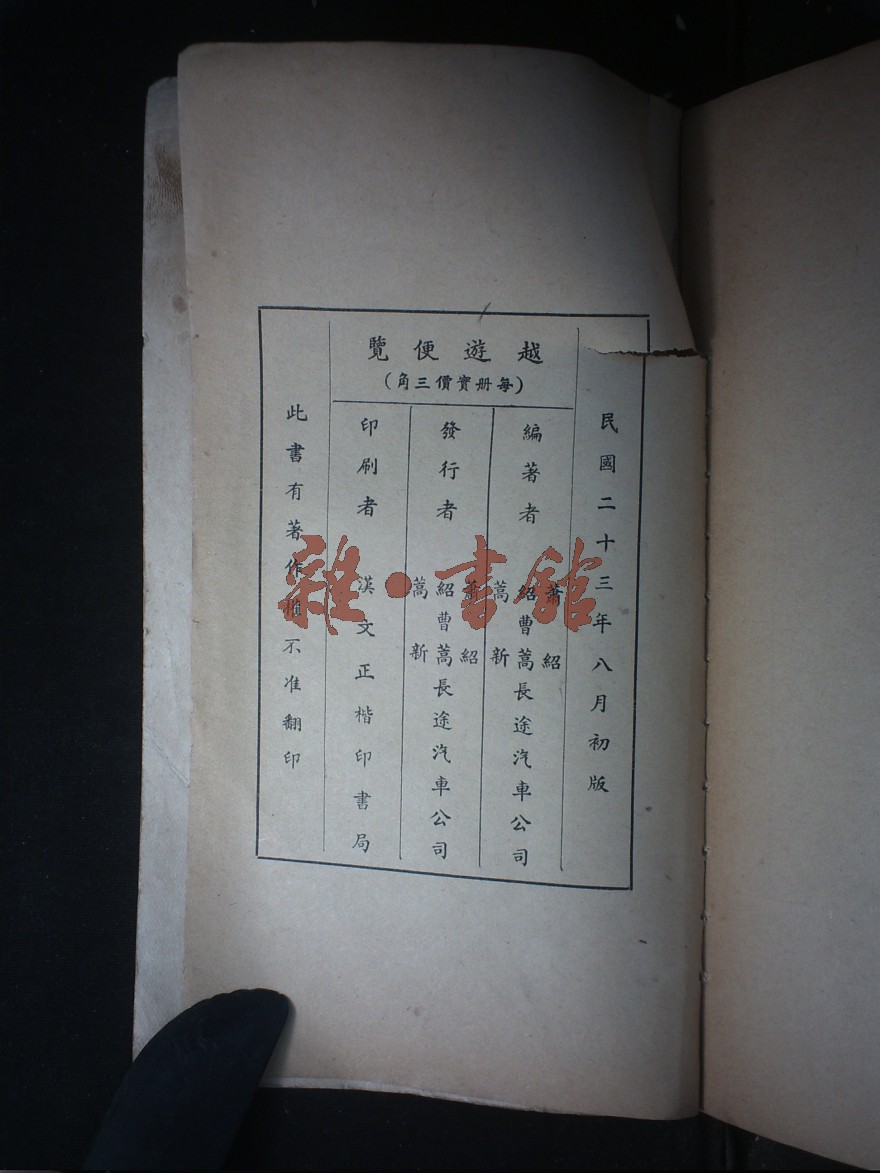 民國二十三年八月初版
越遊便覽
(每册實價三角)
編著者
蕭紹
紹曹蒿長途汽車公司
蒿新
發行者
蕭紹
紹曹蒿長途汽車公司
蒿新
印刷者 漢文正楷印書局
此書有著作權不准翻印
雜·書館